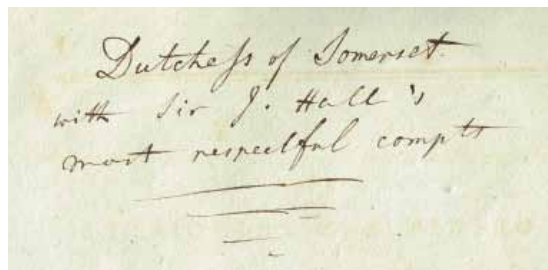 Dutcheſs of Somerset.
with Sir J. Hall's
most respectful compts